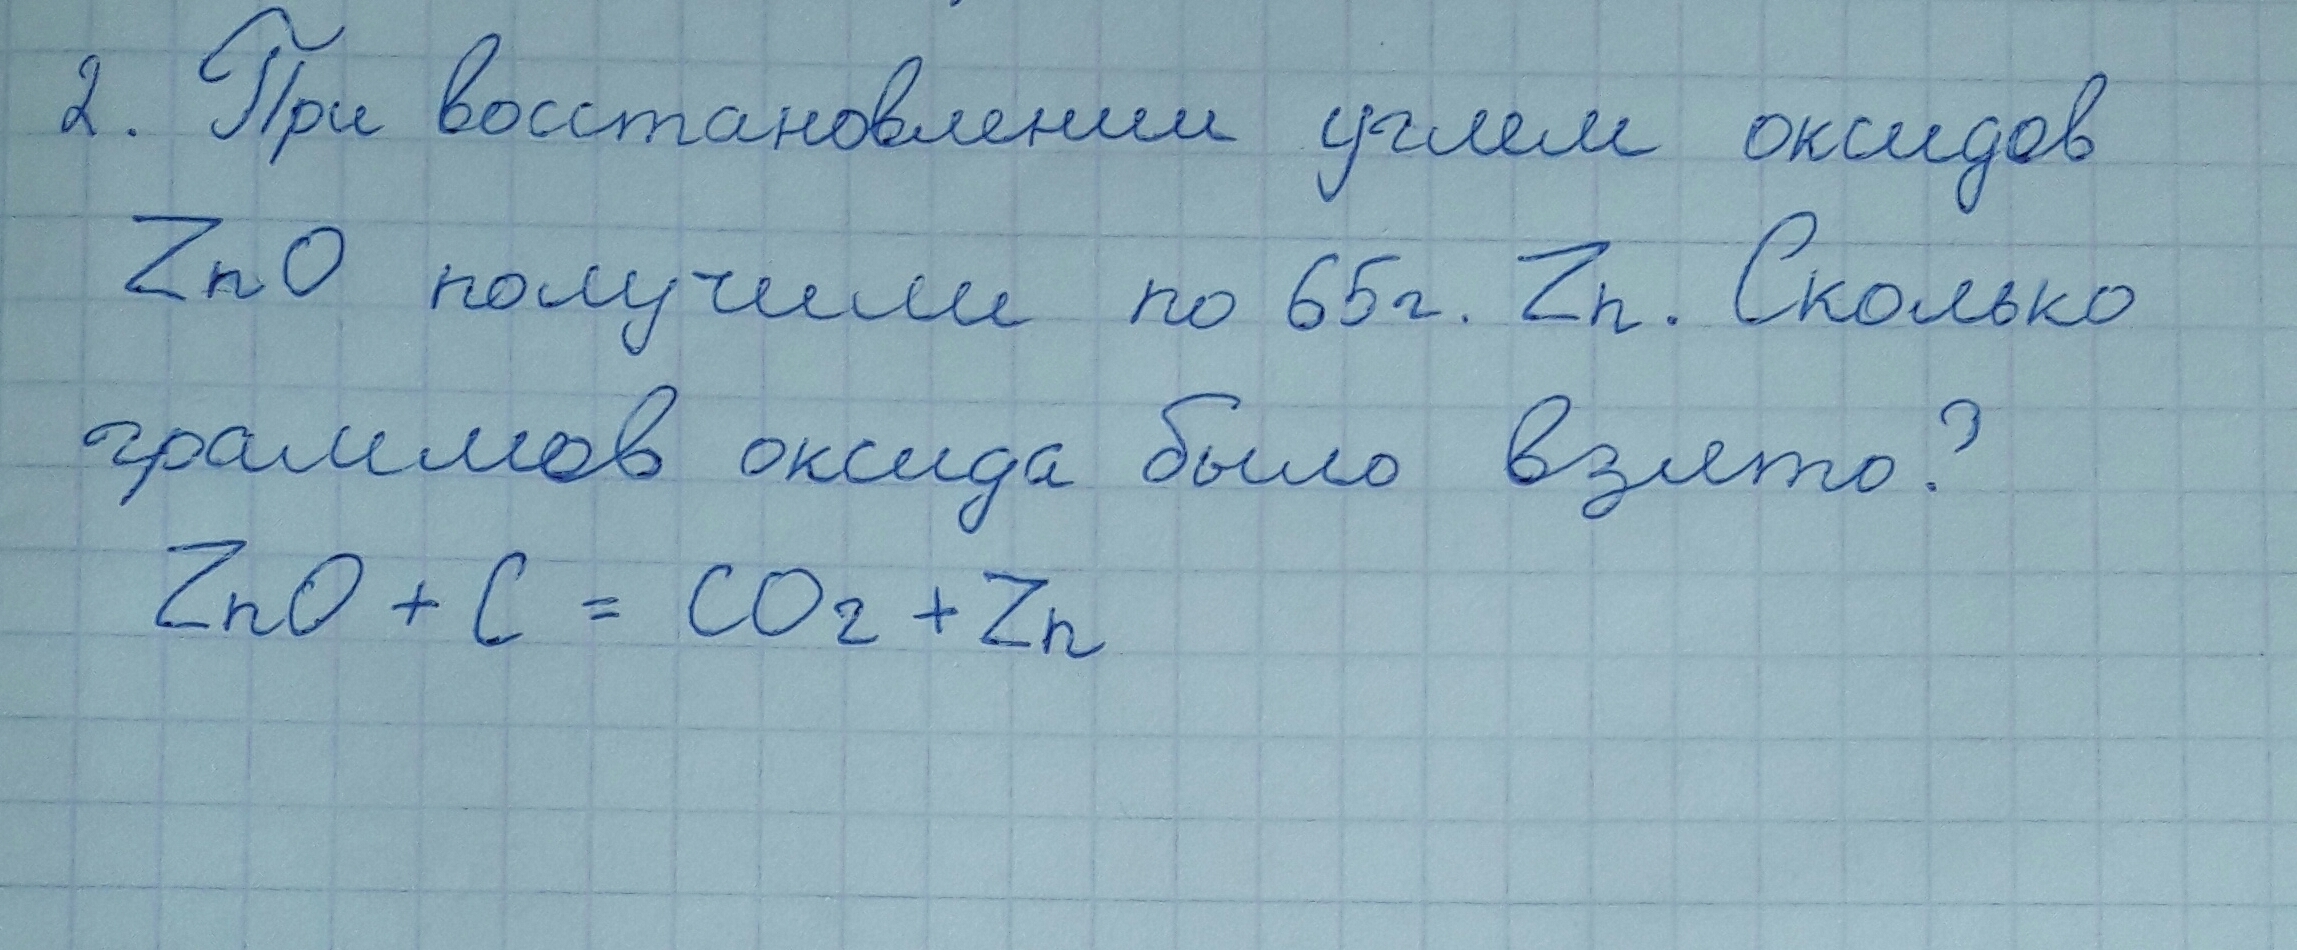 2. При восстановлении углем оксидов
ZnO получили по 65г. Zn. Сколько
граммов оксида было взято?
ZnO + C = CO₂ + Zn